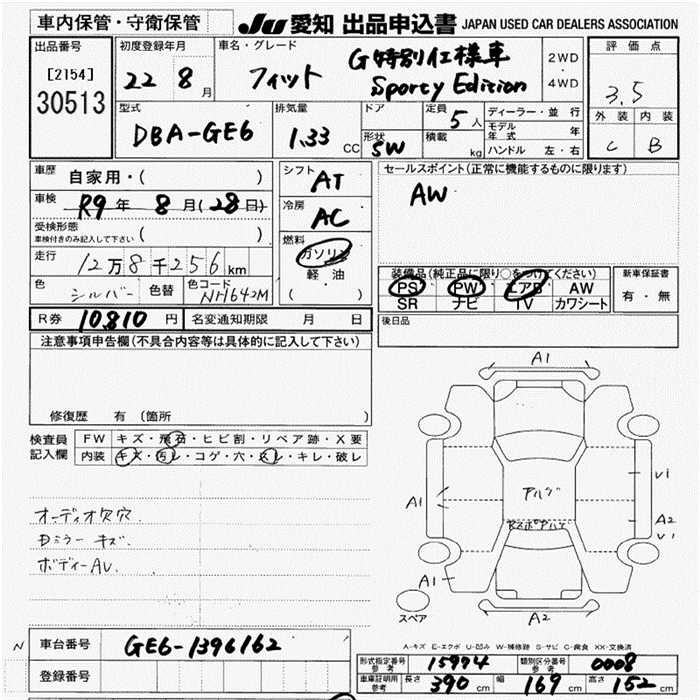 車内保管・守衛保管
JU 愛知 出品申込書 JAPAN USED CAR DEALERS ASSOCIATION
出品番号 [2154] 30513
初度登録年月 22 8月
車名・グレード フィット G特別仕様車 Sporty Edition
2WD・4WD
評価点 3.5
外装 C 内装 B
型式 DBA-GE6
排気量 1.33 CC
ドア 形状 5W
定員 5人
積載 kg
ディーラー・並行
モデル年式 年
ハンドル 左・右
車歴 自家用・( )
車検 R9年 8月(28日)
受検形態 車検付きのみ記入して下さい ( )
走行 12万8千256km
色 シルバー 色替 色コード NH642M
シフト AT
冷房 AC
燃料 ガソリン 軽油 ( )
セールスポイント(正常に機能するものに限ります)
AW
装備品(純正品に限り○をつけてください)
PS PW エアB AW
SR ナビ TV カワシート
新車保証書 有・無
R券 10,810円 名変通知期限 月 日
後日品
注意事項申告欄(不具合内容等は具体的に記入して下さい)
修復歴 有(箇所
検査員記入欄
FW キズ・飛石・ヒビ割・リペア跡・X要
内装 キズ・汚レ・コゲ・穴・スレ・キレ・破レ
オーディオ欠穴
Dミラー キズ
ボディーAU
A1
A1
U1
A2
U1
A1
A2
スペア
A-キズ E-エクボ U-凹み W-補修跡 S-サビ C-腐食 XX-交換済
N
車台番号 GE6-1396162
登録番号
形式指定番号 参考 15974 類別区分番号 参考 0008
車庫証明用 参考 長さ 390cm 幅 169cm 高さ 152cm